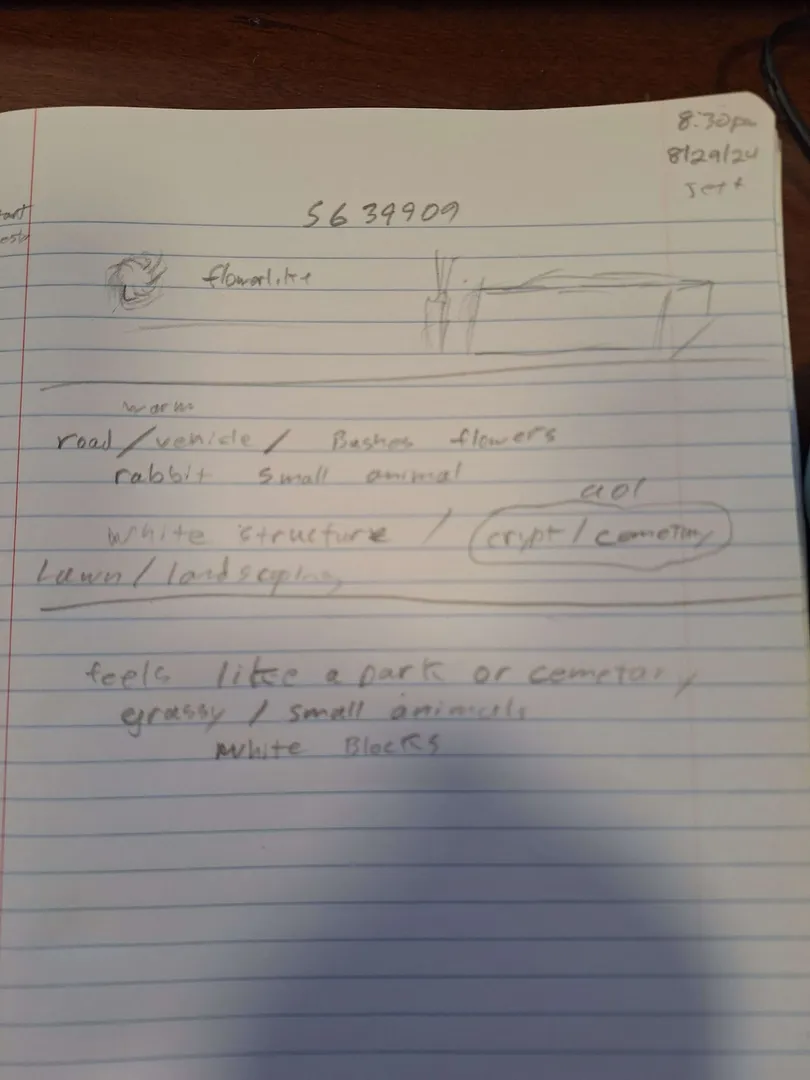 8:30pm
8/29/24
Jett
S639909
flowerlike
warm
road / vehicle / Bushes flowers
rabbit small animal
aol
white structure / crypt / cemetary
Lawn / landscaping
feels like a park or cemetary
grassy / small animals
white Blocks